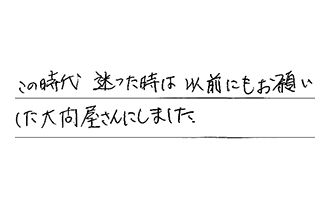 この時代 迷った時は 以前にもお願い
した大向屋さんにしました。